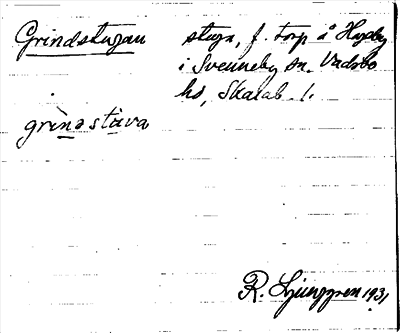 Grindstugan stuga, f. torp å Hagby
i Svenneby sn. Vadsbo
hd, Skarab. l.
grìnastùva
R. Ljunggren 1931